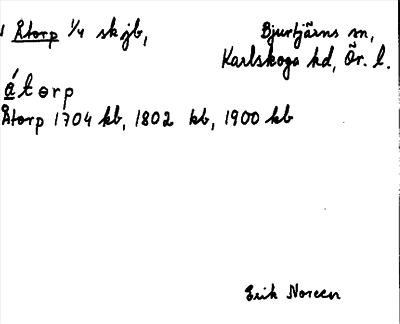 Åtorp 1/4 skjb,
Bjurtjärns sn,
Karlskoga hd, Ör. l.
ǻtɵrp
Åtorp 1704 kb, 1802 kb, 1900 kb
Erik Noreen